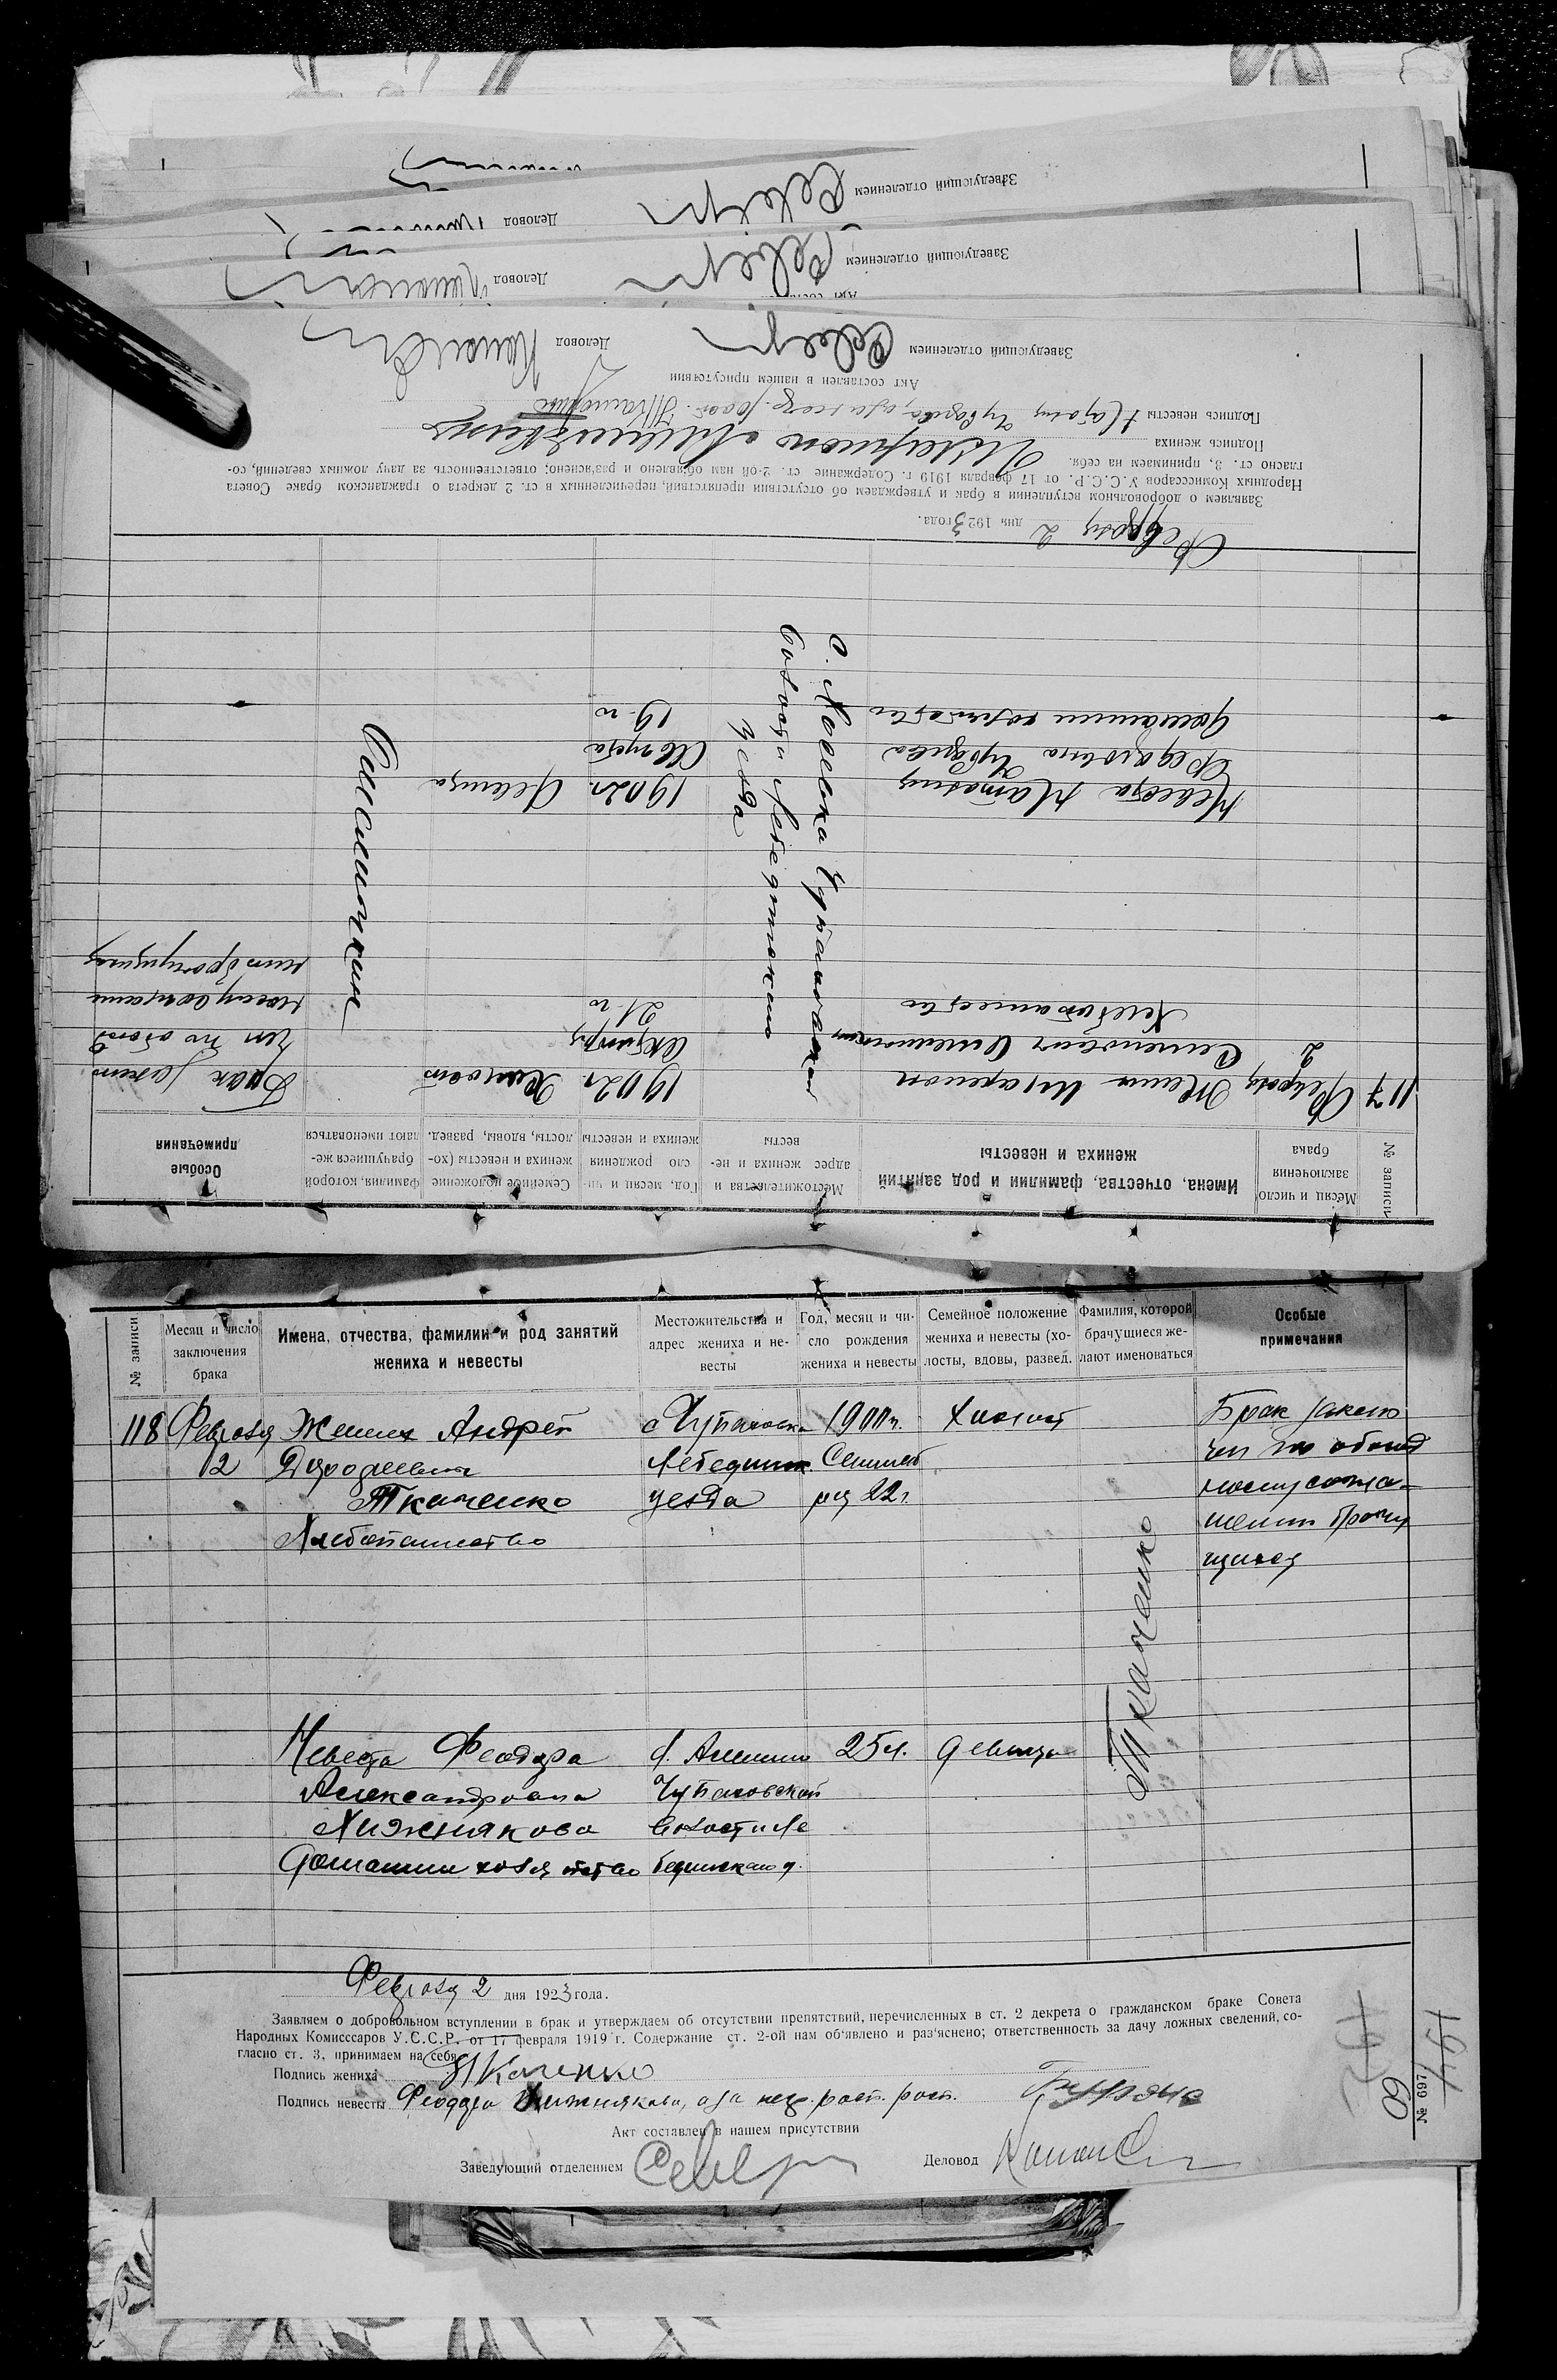 Заведующий отделением
Деловод
Заведующий отделением
Деловод
№ записи
Месяц и число заключения брака
Имена, отчества, фамилии и род занятий жениха и невесты
Местожительства и адрес жениха и невесты
Год, месяц и число рождения жениха и невесты
Семейное положение жениха и невесты (холосты, вдовы, развед.
Фамилия, которой брачущиеся желают именоваться
Особые примечания
117 Февраля Жених Иларион 1902 г. Холост Брак заклю
2 Семенович октября чен по обоюд
Хлебопашество 21 го ному соглаше
нию брачущихся
Невеста Наталия 1902 г. девица
Федоровна Августа
домашнее хозяйство 19 го
Февраля 2 дня 1923 года.
Заявляем о добровольном вступлении в брак и утверждаем об отсутствии препятствий, перечисленных в ст. 2 декрета о гражданском браке Совета
Народных Комиссаров У.С.С.Р. от 17 февраля 1919 г. Содержание ст. 2-ой нам об'явлено и раз'яснено; ответственность за дачу ложных сведений, со-
гласно ст. 3, принимаем на себя.
Подпись жениха Иларион
Подпись невесты
Акт составлен в нашем присутствии
Заведующий отделением
Деловод
№ записи
Месяц и число
заключения
брака
Имена, отчества, фамилии и род занятий
жениха и невесты
Местожительства и
адрес жениха и не-
весты
Год, месяц и чи-
сло рождения
жениха и невесты
Семейное положение
жениха и невесты (хо-
лосты, вдовы, развед.
Фамилия, которой
брачущиеся же-
лают именоваться
Особые
примечания
118 Февраля Жених Андрей с Чупаховка 1900 г. Холост Брак заклю
2 Дорофеевич Лебединск. Сентяб чен по обоюд
Ткаченко уезда ря 22 г. ному согла-
Хлебопашество шению брачу
щихся
Ткаченко
Невеста Феодора 25 л. девица
Александровна Чупаховской
Хижнякова волости Ле
домашнее хозяйство бединского у.
Февраля 2 дня 1923 года.
Заявляем о добровольном вступлении в брак и утверждаем об отсутствии препятствий, перечисленных в ст. 2 декрета о гражданском браке Совета
Народных Комисссаров У.С.С.Р. от 17 февраля 1919 г. Содержание ст. 2-ой нам об'явлено и раз'яснено; ответственность за дачу ложных сведений, со-
гласно ст. 3, принимаем на себя.
Подпись жениха Ткаченко
Подпись невесты Феодора Хижнякова, а за негр. расп.
Акт составлен в нашем присутствии
Заведующий отделением
Деловод
№ 697
60